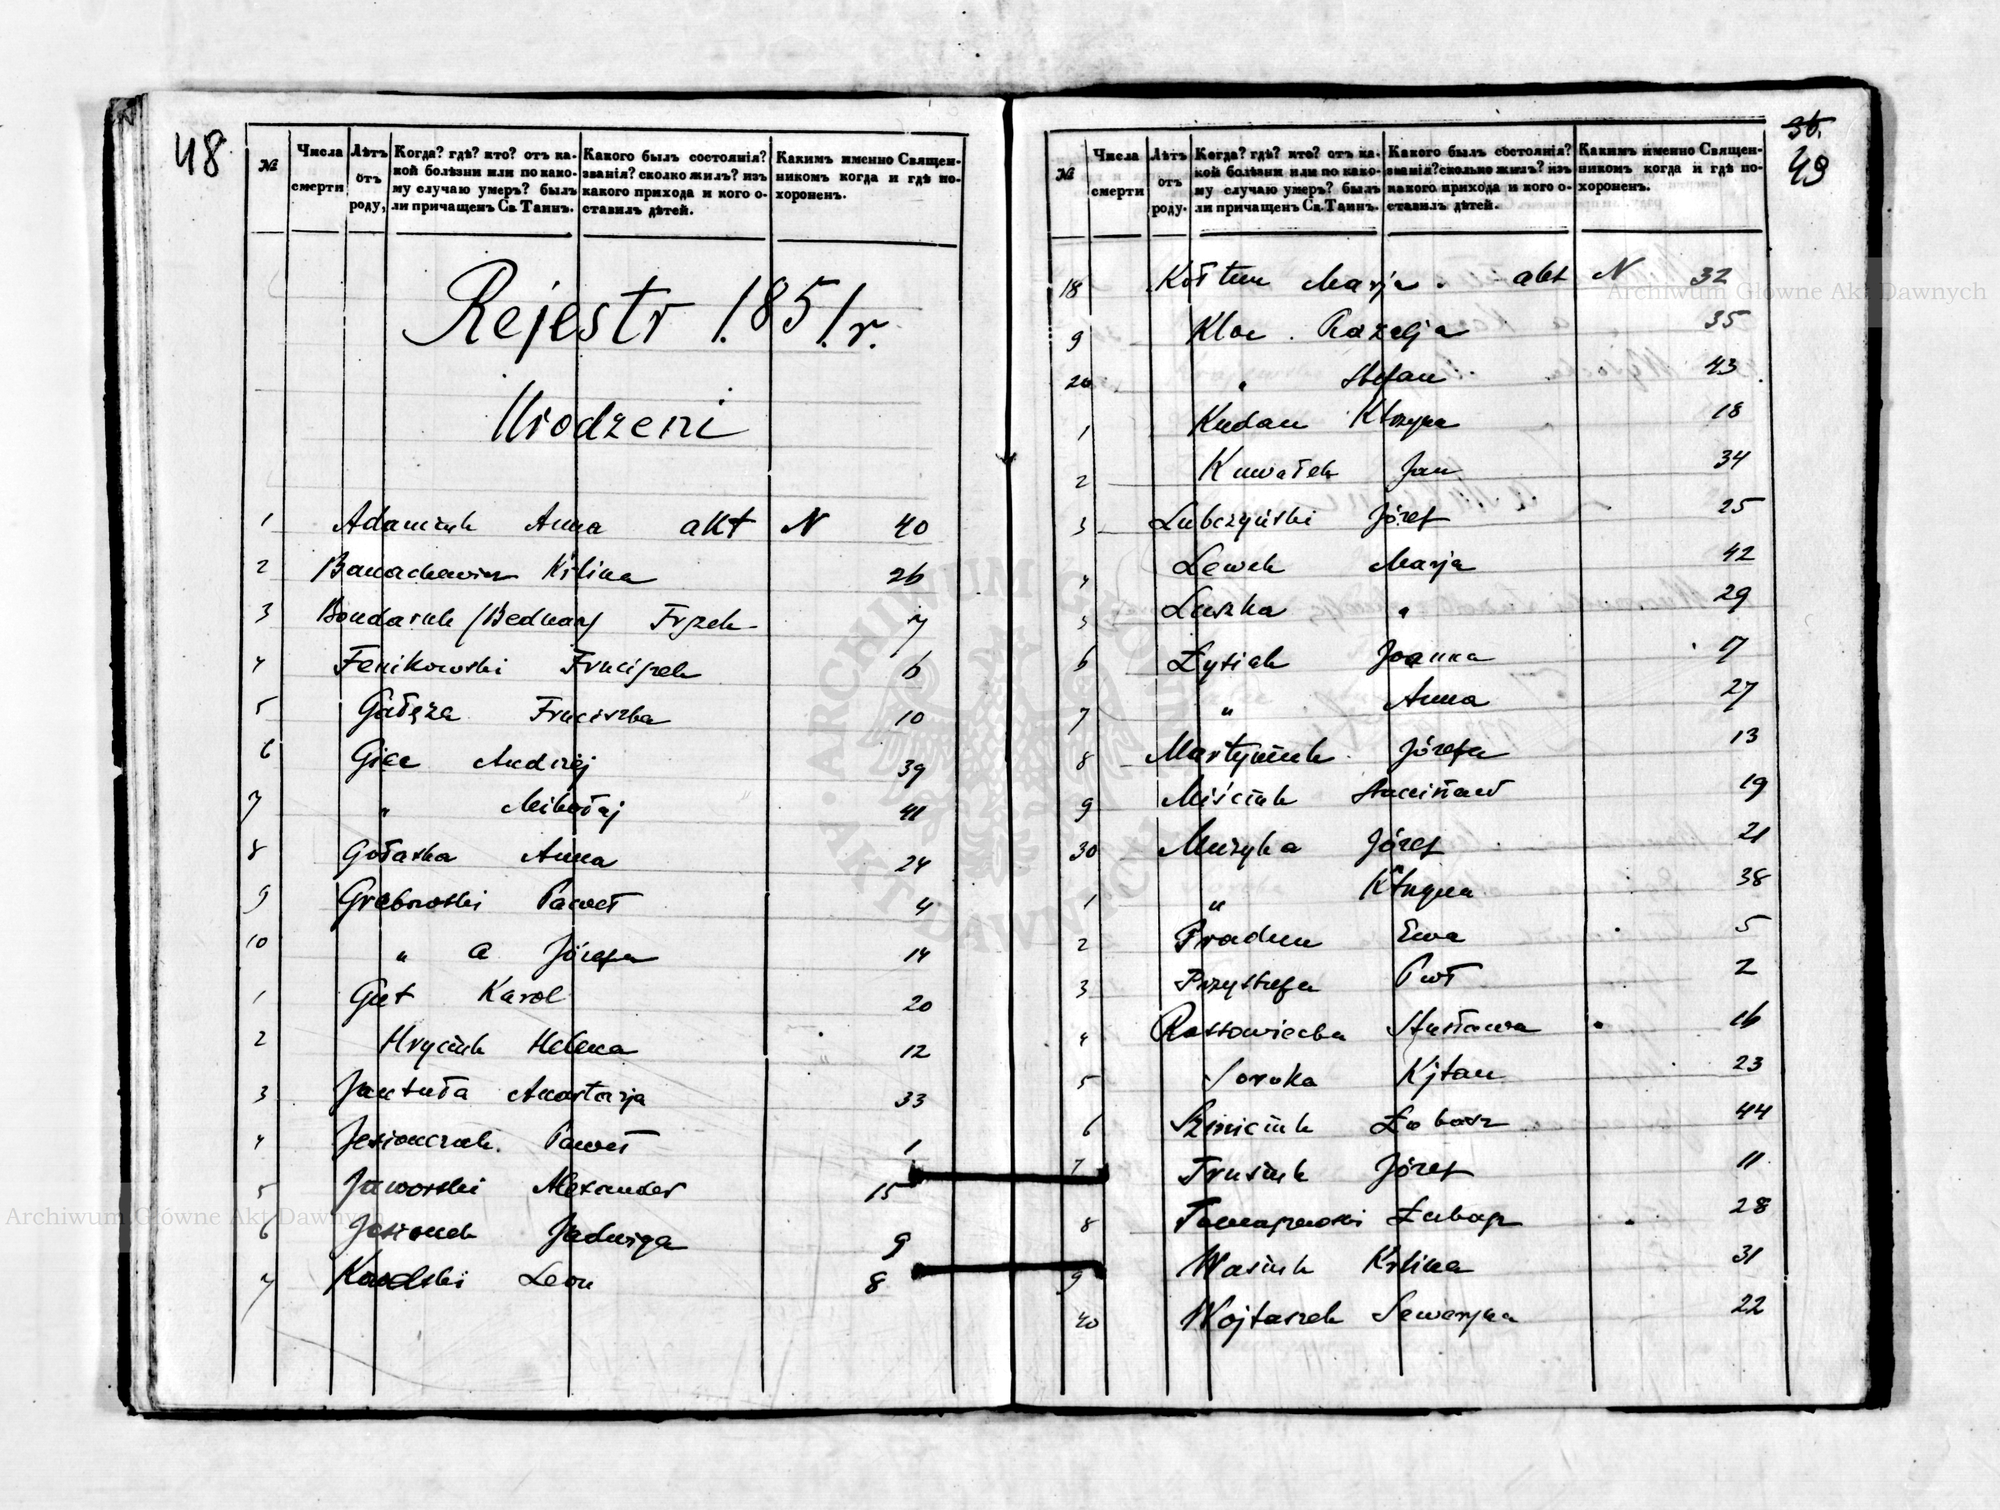 48
№
Числа смерти
Лѣтъ отъ роду,
Когда? гдѣ? кто? отъ ка-
кой болѣзни или по како-
му случаю умеръ? былъ
ли причащенъ Св. Таин.
Какого былъ состоянія?
званія? сколко жилъ? изъ
какого прихода и кого о-
ставилъ дѣтей.
Какимъ именно Священ-
никомъ когда и гдѣ по-
хороненъ.
Rejestr 1851 r.
Urodzeni
1 Adamiuk Anna akt N 40
2 Banachewicz Krlina 26
3 Bondaruk /Bednarz/ Frzek 7
4 Fenikowski Frncizek 6
5 Gałęza Frnciszka 10
6 Giec Andrzej 39
7 " Mikołaj 41
8 Gołaska Anna 24
9 Grabowski Paweł 4
10 " a Józefa 14
1 Gut Karol 20
2 Hryciuk Helena 12
3 Jantuła Anastazja 33
4 Jesionczuk Paweł 1
5 Jaworski Alexander 15
6 Jesionek Jadwiga 9
7 Leon 8
36.
49
№
Числа смерти
Лѣтъ отъ роду.
Когда? гдѣ? кто? отъ ка-
кой болѣзни или по како-
му случаю умеръ? былъ
ли причащенъ Св. Таин.
Какого былъ состоянія?
званія? сколько жилъ? изъ
какого прихода и кого о-
ставилъ дѣтей.
Какимъ именно Священ-
никомъ когда и гдѣ по-
хороненъ.
18 Kołtun Marja akt N 32
9 Kloc Rozalja 35
20 " Stefan 43
1 Kudan Ktrzyna 18
2 Kuwałek Jan 34
3 Lubczyński Józef 25
4 Lewek Marja 42
5 Luszka " 29
6 Łysiak Joanna 17
7 " Anna 27
8 Martyniuk Józefa 13
9 Miściuk Stanisław 19
30 Muzyka Józef 21
1 " Ktrzyna 38
2 Pradun Ewa 5
3 Przystupa Pwł 2
4 Rossowiecka Stnisława 16
5 Soroka Kjtan 23
6 Szmiciuk Łukasz 44
7 Trusiuk Józef 11
8 Tomaszewski Łukasz 28
9 Wasiuk Krlina 31
40 Wojtaszek Seweryna 22
Archiwum Główne Akt Dawnych
Archiwum Główne Akt Dawnych
ARCHIWUM GŁÓWNE
AKT DAWNYCH